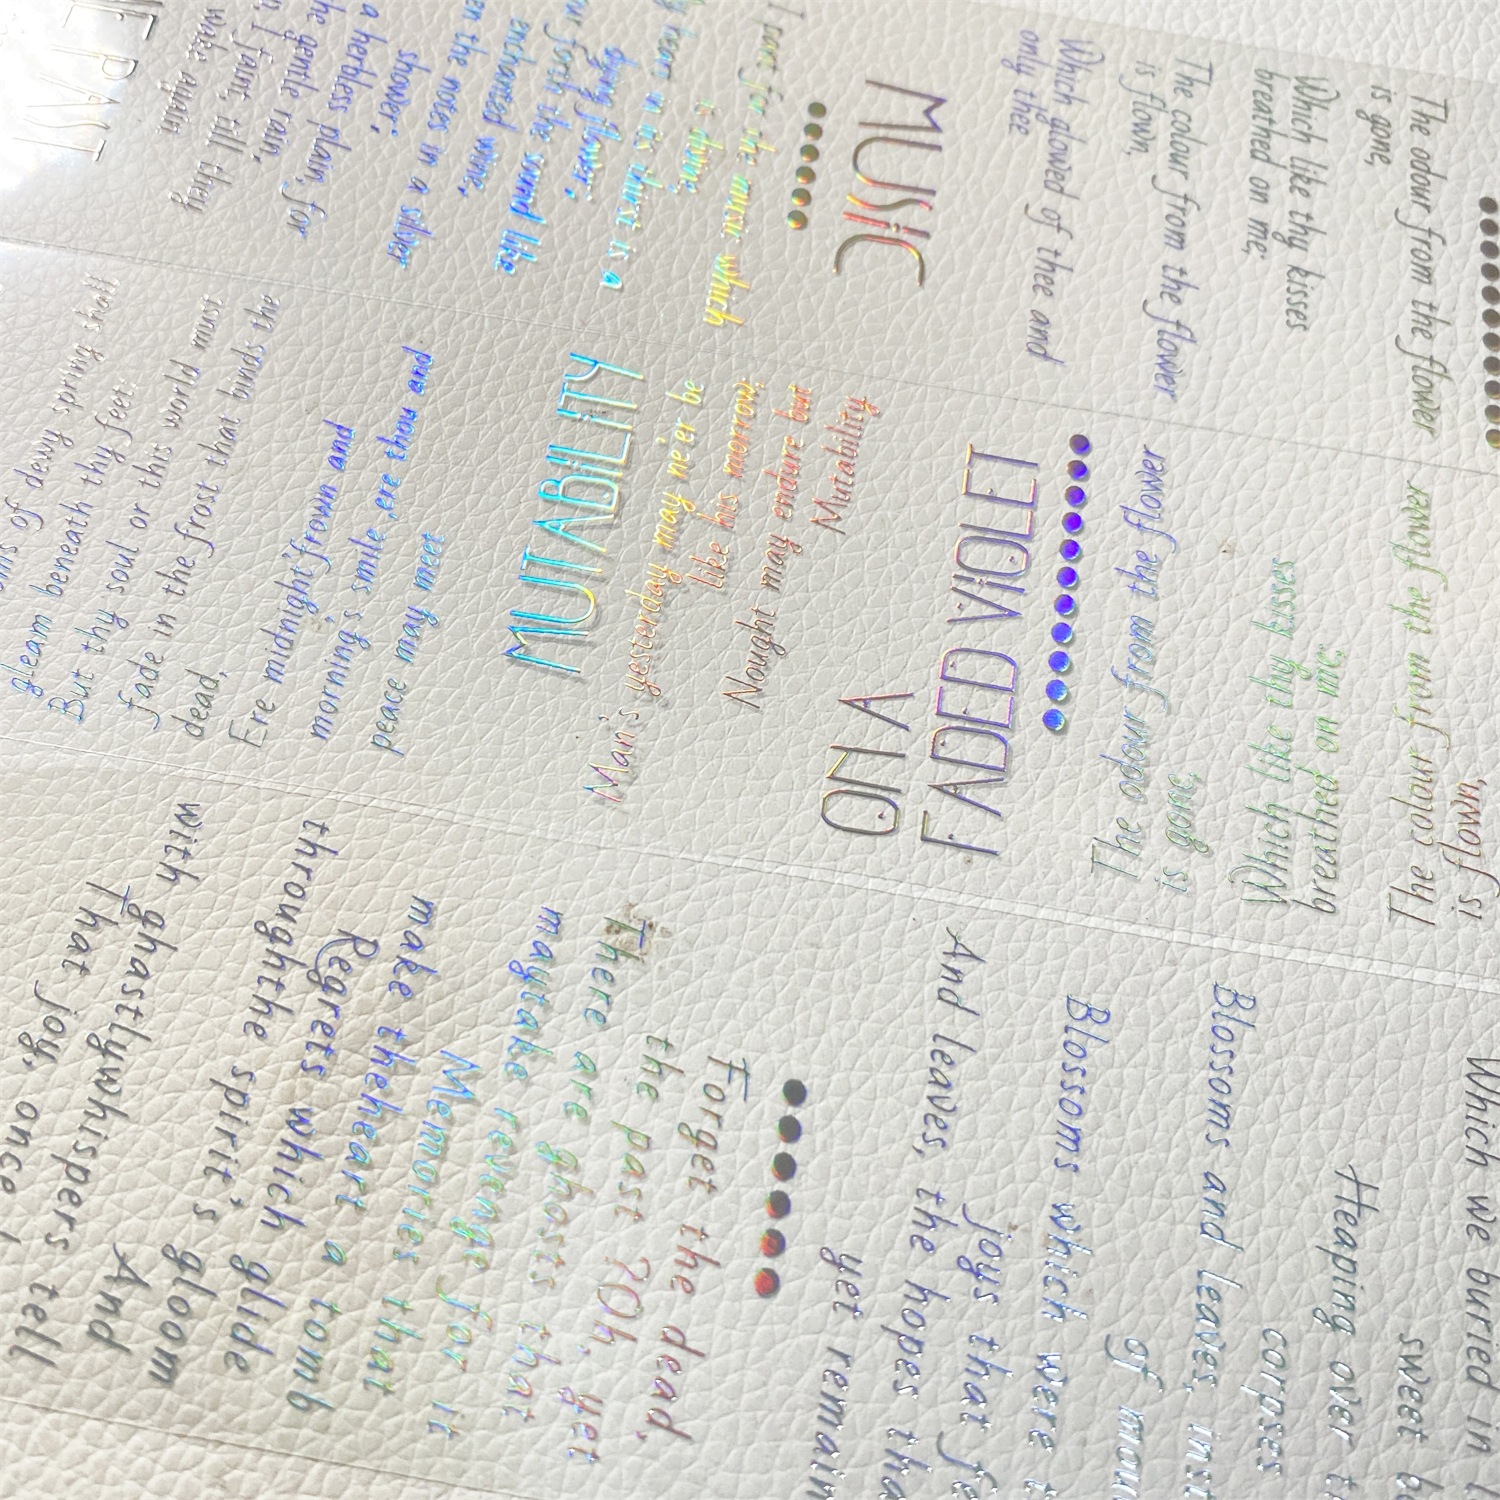 The odour from the flower
is gone,
Which like thy kisses
breathed on me;
The colour from the flower
is flown,
Which glowed of thee and
only thee
MUSIC
I pant for the music which
is divine,
heart in its thirst is a
dying flower;
forth the sound like
enchanted wine,
the notes in a silver
shower;
a herbless plain, for
the gentle rain,
I faint, till they
wake again.
THE PAST
ON A
FADED VIOLET
The odour from the flower
is gone,
Which like thy kisses
breathed on me;
The colour from the flower
is flown,
Man's yesterday may ne'er be
like his morrow;
Nought may endure but
Mutability
MUTABILITY
of dewy spring shall
gleam beneath thy feet:
But thy soul or this world must
fade in the frost that binds the
dead,
Ere midnight's frown and
morning's smile, ere thou and
peace may meet
Which we buried in
sweet
Heaping over
corpses
Blossoms and leaves,
of
Blossoms which were
joys that
And leaves, the hopes
yet remain
Forget the dead,
the past ?Oh, yet
There are ghosts that
maytake revenge for it
Memories that
make theheart a tomb
Regrets which glide
throughthe spirit's gloom
And
with ghastlywhispers tell
That joy, once